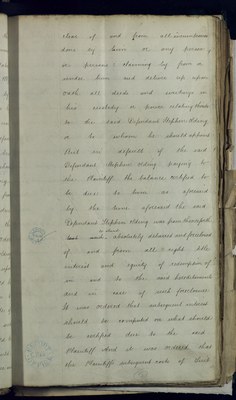 clear of and from all incumbrances
done by him or any person
or persons claiming by from or
under him and deliver up upon
oath all deeds and writings in
his custody or power relating thereto
to the said Defendant Stephen
or to whom he should appoint
But in default of the said
Defendant Stephen paying to
the Plaintiff the balance certified to
be due to him as aforesaid
by the time aforesaid the said
Defendant Stephen was from thenceforth
to stand absolutely debarred and foreclosed
of and from all right title
interest and equity of redemption of
in and to the said hereditaments
and in case of such foreclosure
It was ordered that subsequent interest
should be computed on what should
be certified due to the said
Plaintiff And it was ordered that
the Plaintiffs subsequent costs of Suit